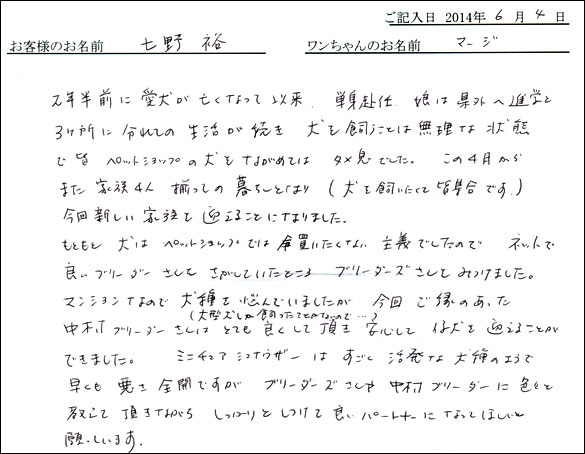 ご記入日 2014年 6 月 4 日
お客様のお名前 七野 裕 ワンちゃんのお名前 マージ
2年半前に愛犬が亡くなって以来、単身赴任、娘は県外へ進学と
3ヶ所に分れての生活が続き 犬を飼うことは無理な状態
で皆 ペットショップの犬をながめては タメ息でした。 この4月から
また 家族4人 揃っての暮らしとなり (犬を飼いたくて皆集合です。)
今回新しい家族を迎えることになりました。
もともと 犬は ペットショップでは買いたくない 主義でしたので ネットで
良いブリーダーさんを さがしていたところ ブリーダーズさんをみつけました。
マンションなので 犬種を悩んでいましたが 今回 ご縁のあった
(大型犬しか飼ったことがないので…)
中村ブリーダーさんは とても良くして頂き 安心して 仔犬を迎えることが
できました。 ミニチュアシュナウザーは すごく 活発な犬種のようで
早くも 悪さ 全開ですが ブリーダーズさんや 中村ブリーダーに 色々と
教えて頂きながら しっかりとしつけて 良いパートナーになってほしいと
願っています。